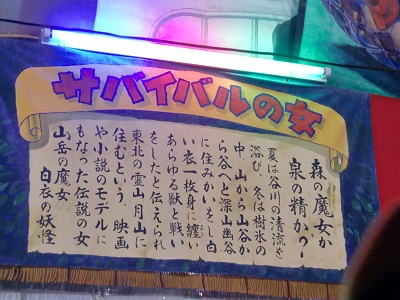 サバイバルの女
森の魔女か
泉の精か?!
夏は谷川の清流を
浴び、冬は樹氷の
中、山から山谷か
ら谷へと深山幽谷
に住みかいをし白
い衣一枚身に纏い
あらゆる獣と戦い
をしたと伝えられ
東北の霊山月山に
住むという、映画
や小説のモデルに
もなった伝説の女
山岳の魔女
白衣の妖怪